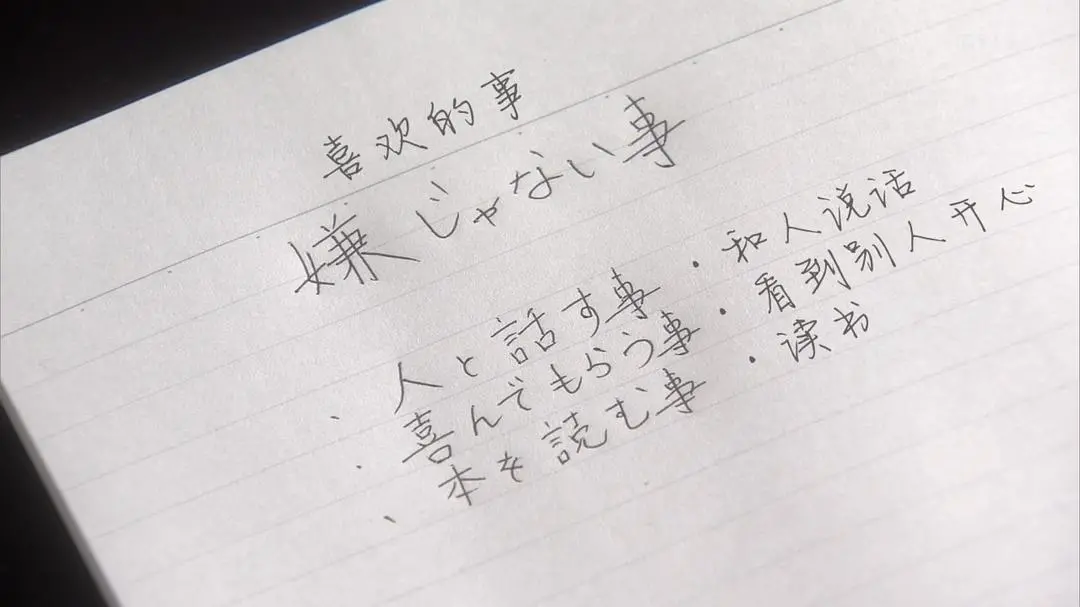 喜欢的事
嫌じゃない事
、人と話す事 ・和人说话
・喜んでもらう事 ・看到别人开心
、本を読む事 ・读书